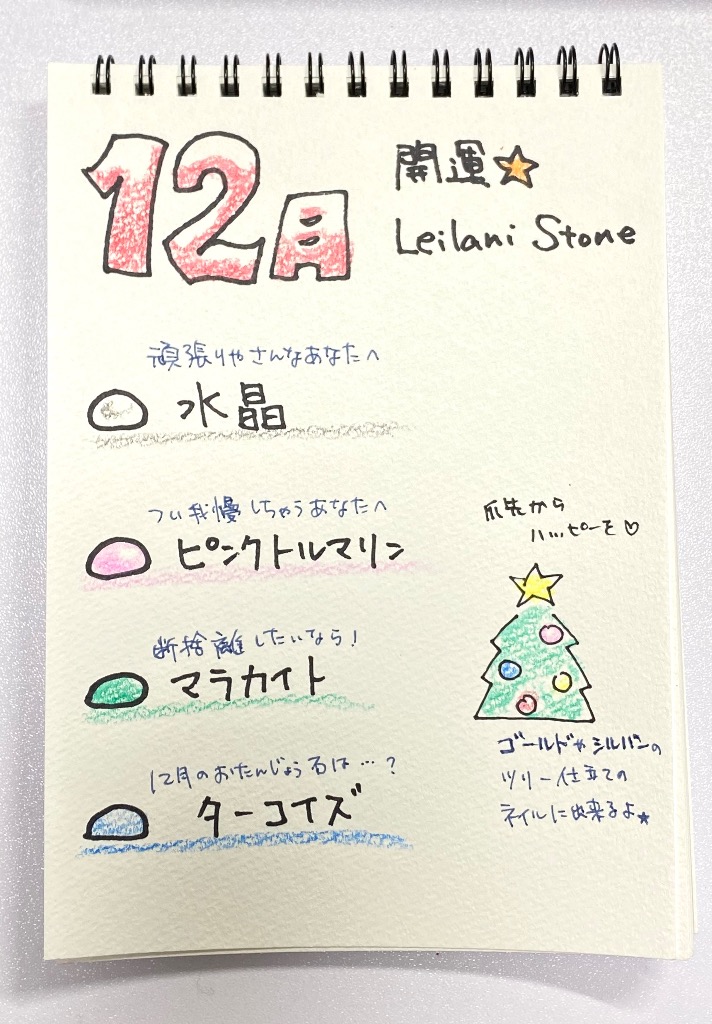 12月
開運★
Leilani Stone
頑張りやさんなあなたへ
水晶
つい我慢しちゃうあなたへ
ピンクトルマリン
断捨離したいなら!
マラカイト
12月のおたんじょう石は…?
ターコイズ
爪先から
ハッピーを♡
ゴールドやシルバーの
ツリー仕立ての
ネイルに出来るよ★